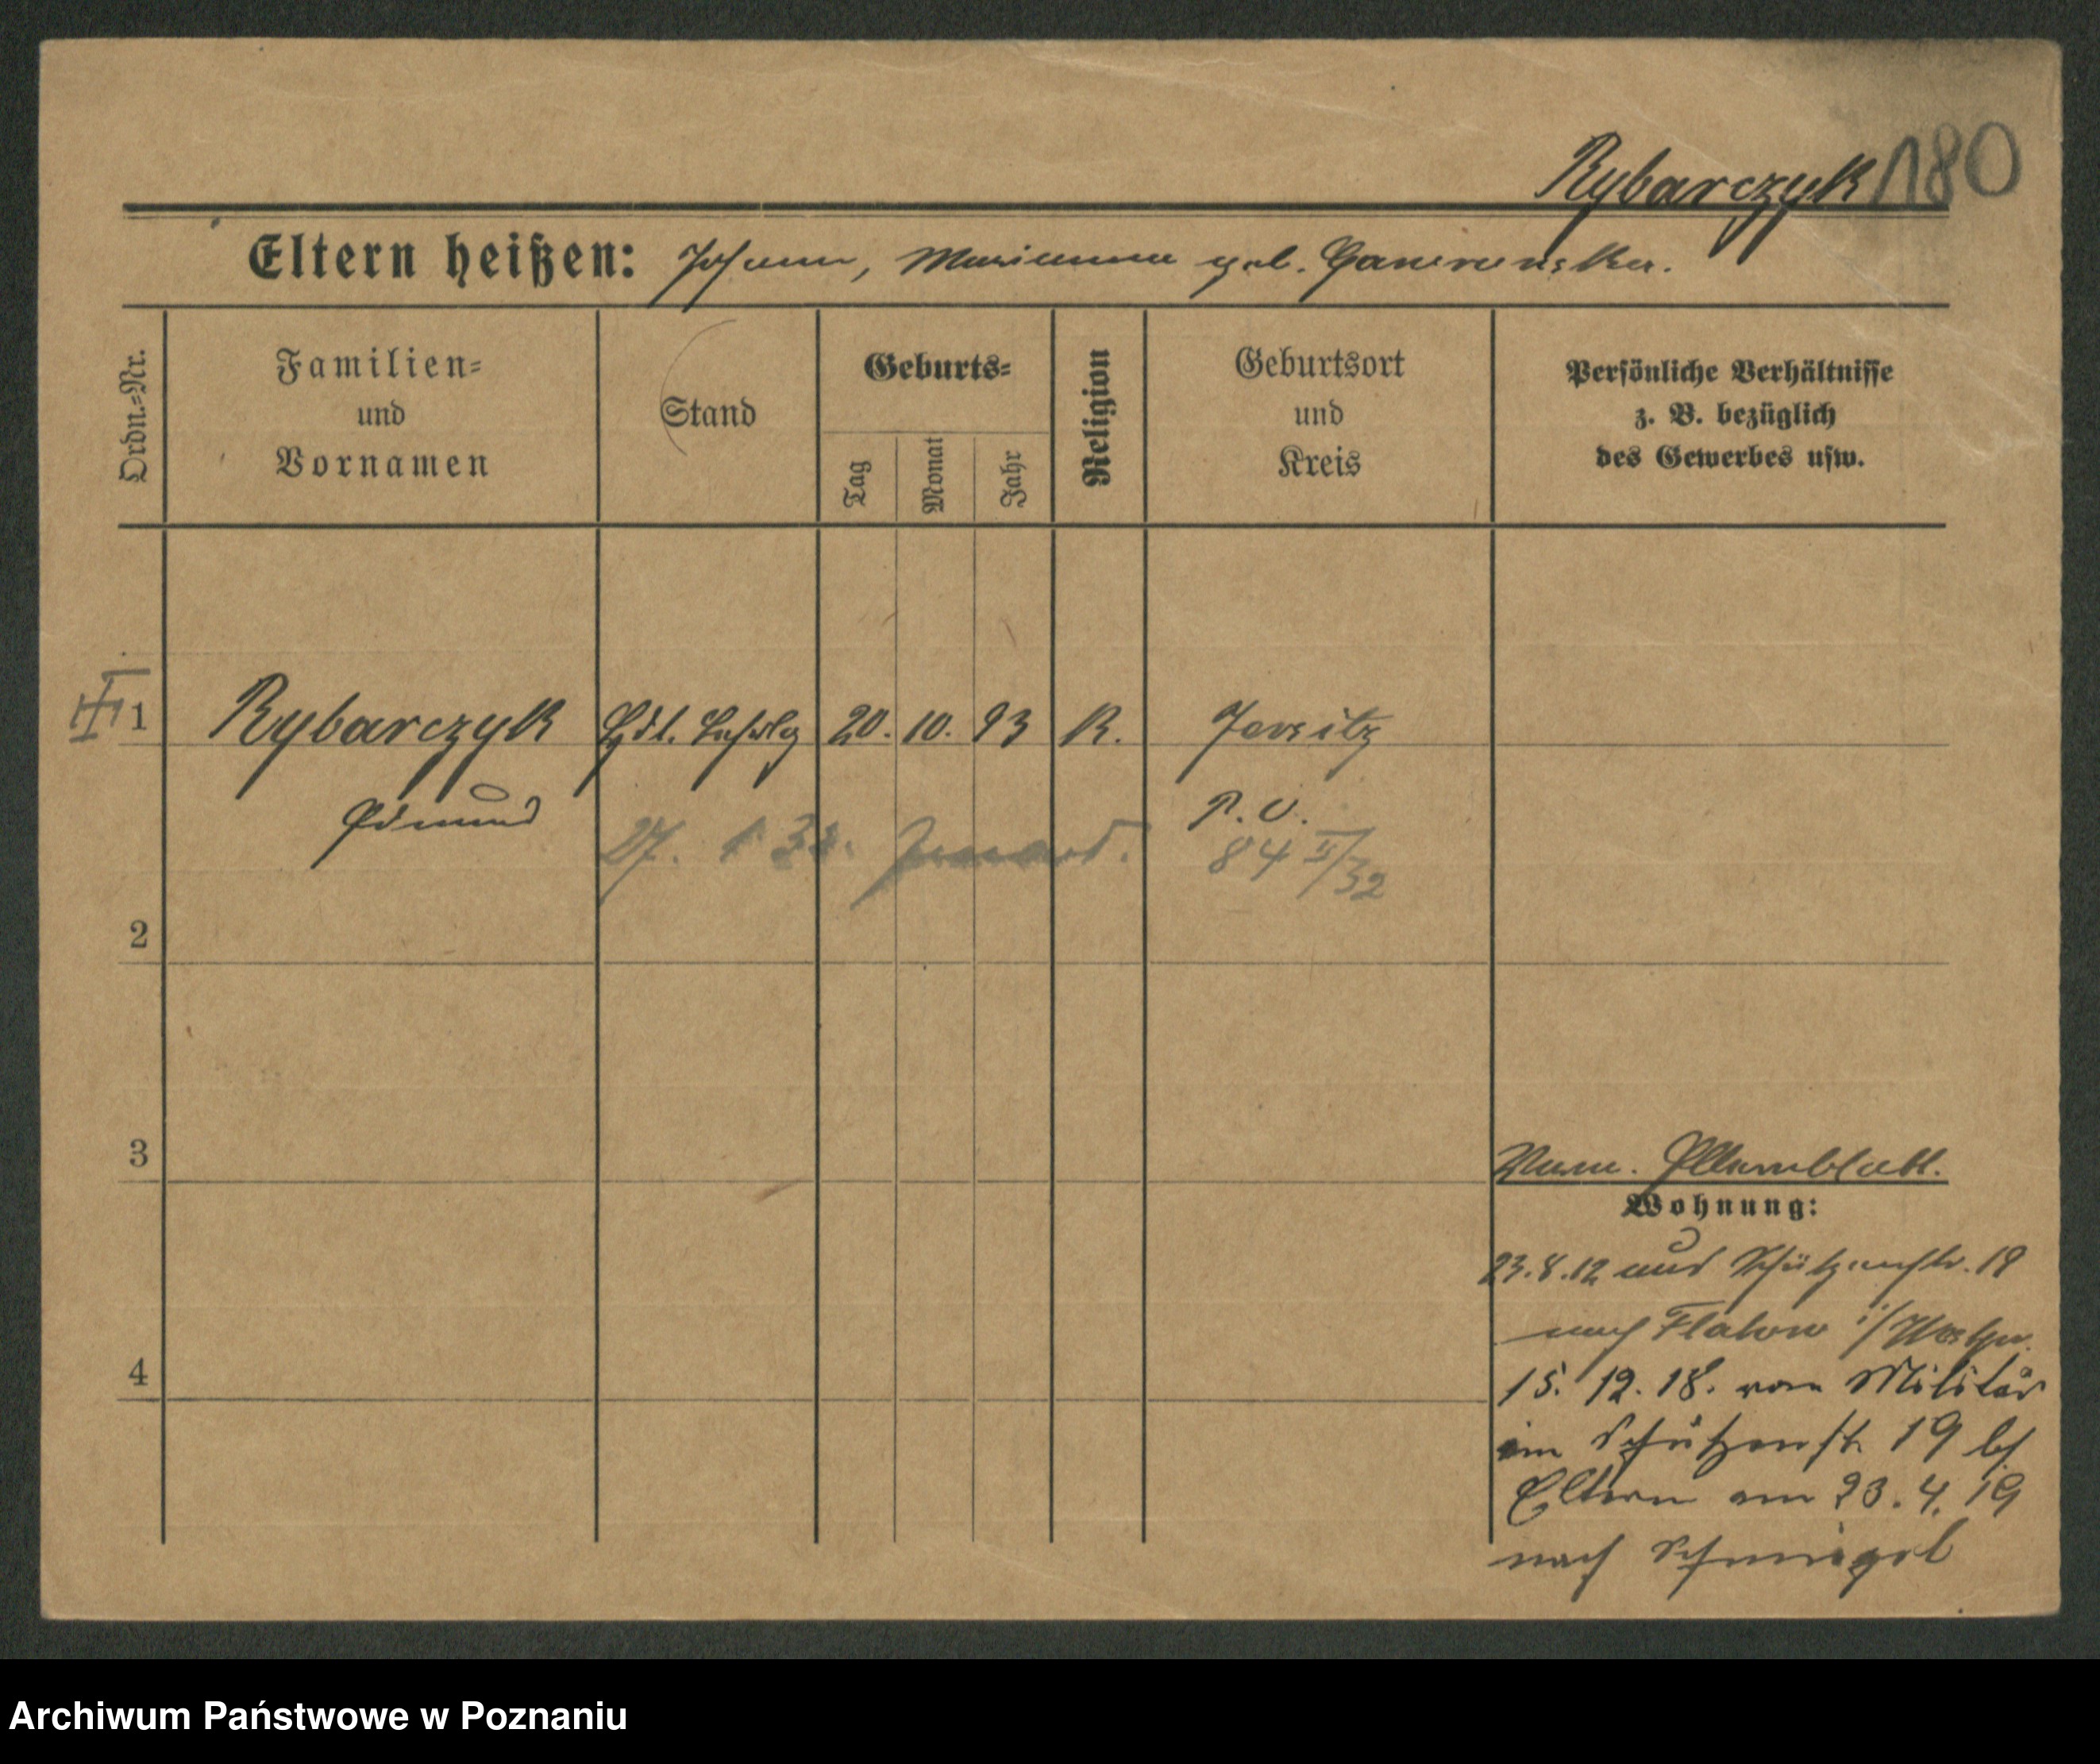 Rybarczyk 180
Eltern heißen: Johann, Marianna geb.
Ordn.=Nr.
Familien=
und
Vornamen
Stand
Geburts=
Tag
Monat
Jahr
Religion
Geburtsort
und
Kreis
Persönliche Verhältnisse
z. B. bezüglich
des Gewerbes usw.
1 Rybarczyk 20. 10. 93 K. Jersitz
Edmund P. O.
27. 1 32. 84 II/32
2
3
Elternblatt.
Wohnung:
23.8.12 aus Schützenstr. 19
nach Flatow i/Westpr.
4
15. 12. 18. vom Militär
in Schützenstr 19 bei
Eltern am 23. 4. 19
nach Schmiegel
Archiwum Państwowe w Poznaniu